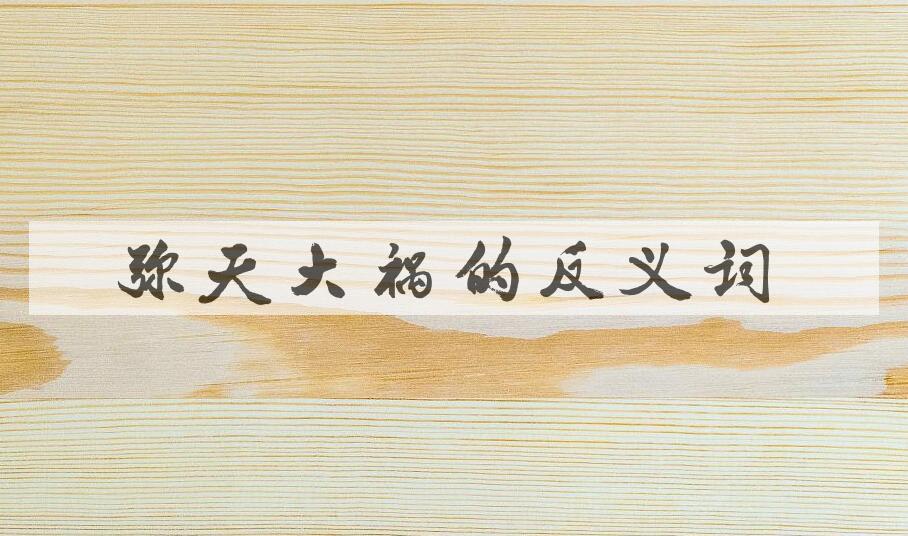 弥天大祸的反义词